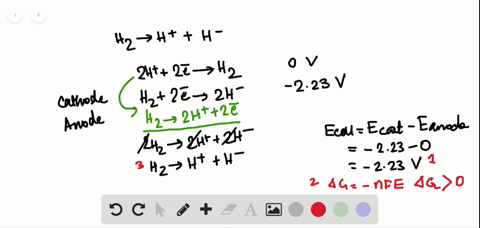 H₂ → H⁺ + H⁻
2H⁺ + 2e̅ → H₂ 0 V
Cathode H₂ + 2e̅ → 2H⁻ -2.23 V
Anode H₂ → 2H⁺ + 2e̅
2H₂ → 2H⁺ + 2H⁻
3 H₂ → H⁺ + H⁻
Ecell = Ecat - Eanode
= -2.23 - 0
= -2.23 V 1
2 ΔG = -nFE ΔG > 0